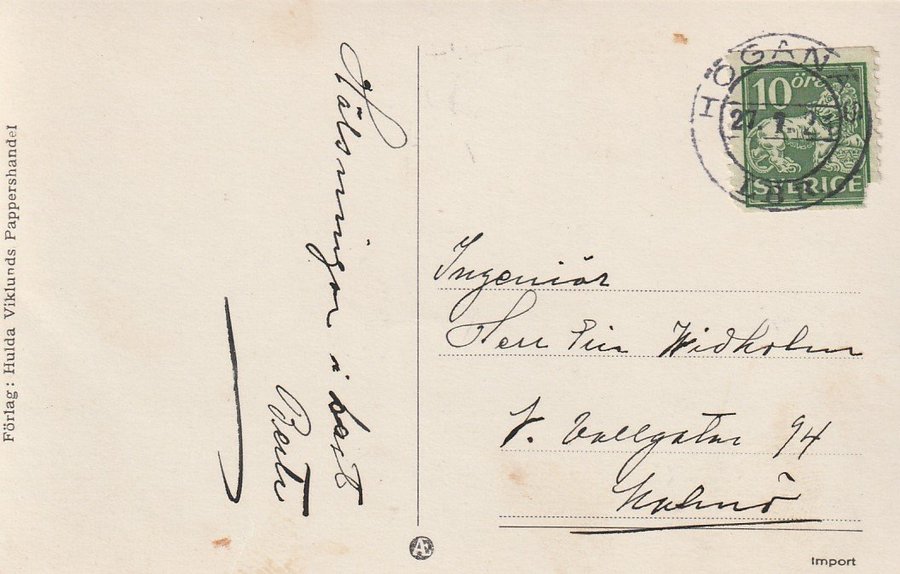 Förlag: Hulda Viklunds Pappershandel
Hälsningar i hast
Berti
HÖGANÄS
27. 7. 2
LBR
10 ÖRE
SVERIGE
Ingeniör
Herr Widholm
V. Vallgatan 94
Malmö
Æ
Import